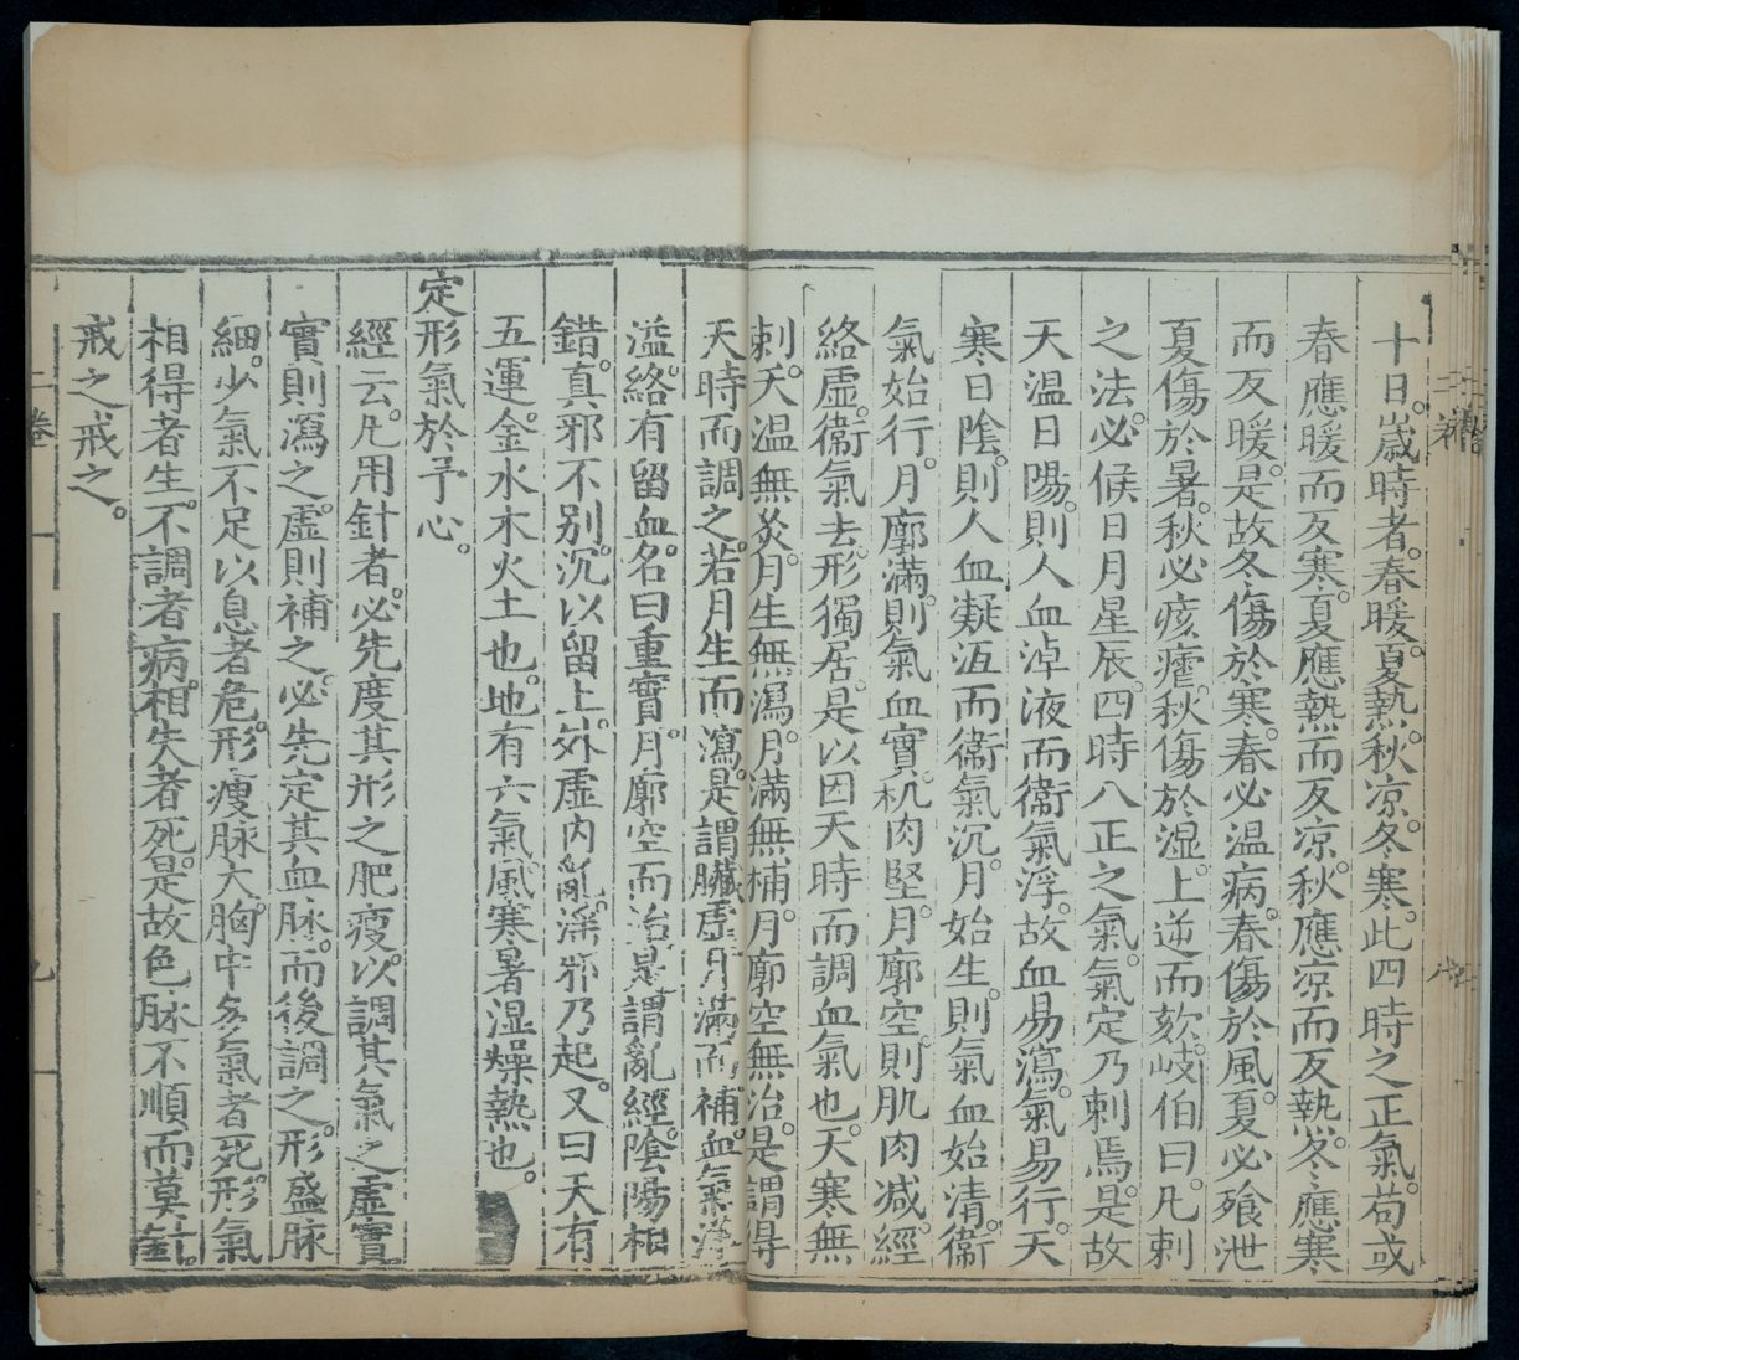 十日。歲時者。春暖。夏熱。秋凉。冬寒。此四時之正氣。苟或
春應暖而反寒。夏應熱而反凉。秋應凉而反熱。冬應寒
而反暖。是故冬傷於寒。春必温病。春傷於風。夏必飱泄
夏傷於暑。秋必痎瘧。秋傷於湿。上逆而欬。岐伯曰。凡刺
之法。必候日月星辰。四時八正之氣。氣定乃刺焉。是故
天温日陽。則人血淖液而衞氣浮。故血易瀉。氣易行。天
寒日陰。則人血凝沍而衞氣沉。月始生。則氣血始清。衞
氣始行。月廓滿。則氣血實。机肉堅。月廓空。則肌肉减。經
絡虚。衞氣去。形獨居。是以因天時而調血氣也。天寒無
刺。天温無灸。月生無瀉。月滿無補。月廓空無治。是謂得
天時而調之。若月生而瀉。是謂臓虚。月滿而補。血氣洋
溢。絡有留血。名曰重實。月廓空而治。是謂亂經。陰陽相
錯。真邪不别。沉以留上。外虚内亂。滛邪乃起。又曰天有
五運。金水木火土也。地有六氣。風寒暑湿燥熱也。
定形氣於予心。
經云。凡用針者。必先度其形之肥瘦。以調其氣之虚實。
實則瀉之。虚則補之。必先定其血脉。而後調之。形盛脉
細。少氣不足以息者危。形瘦脉大。胸中多氣者死。形氣
相得者生。不調者病。相失者死。是故色脉不順而莫針。
戒之戒之。
二卷